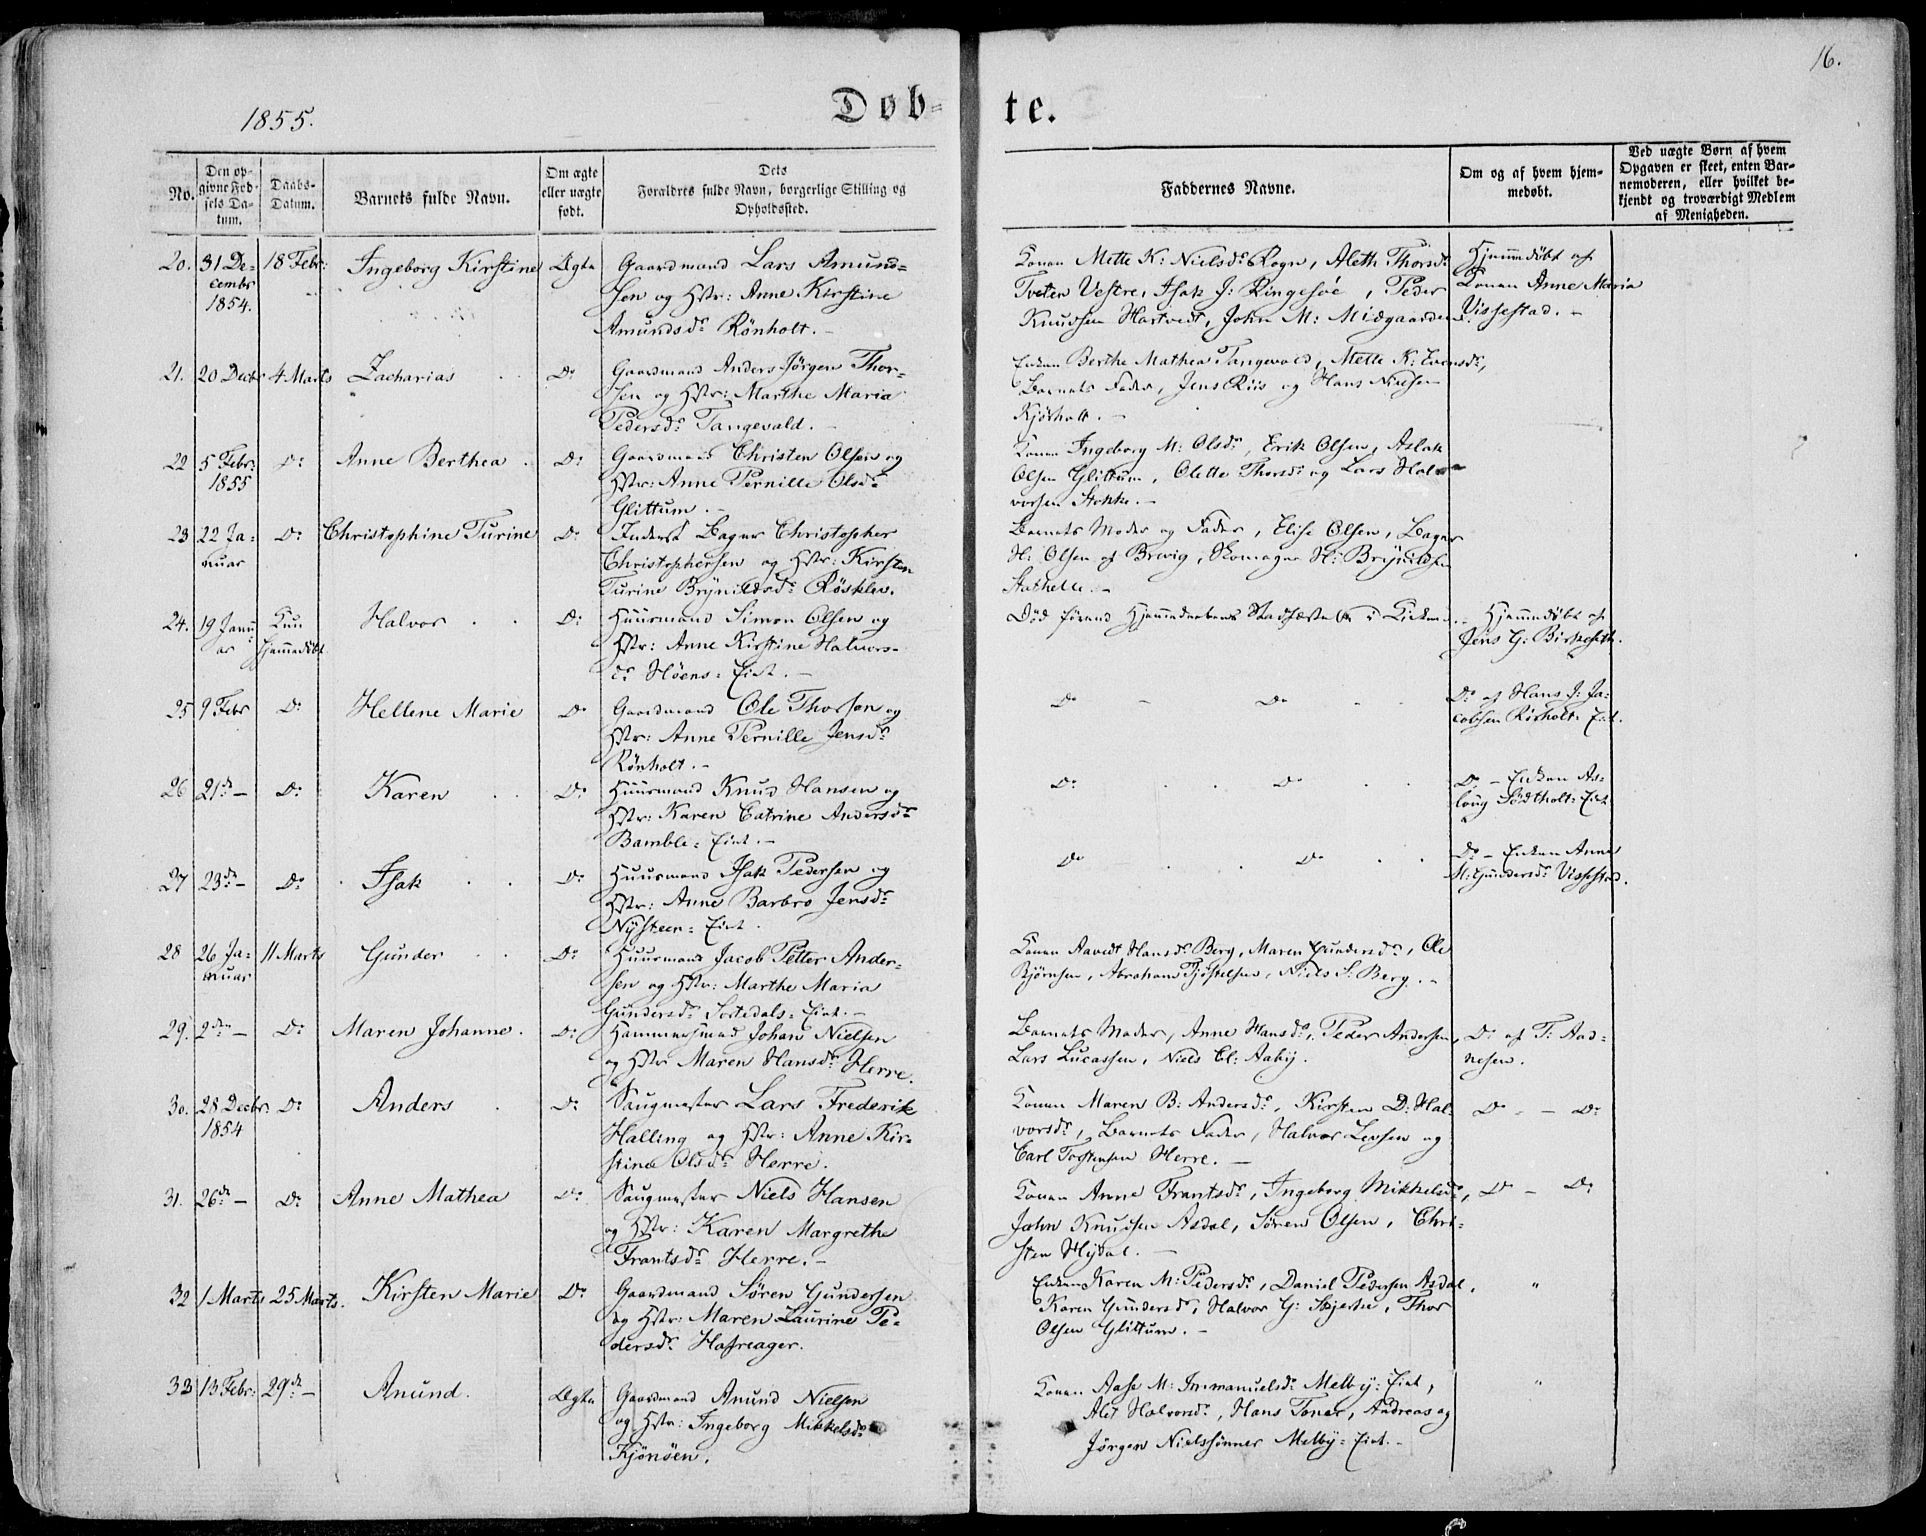 16.
1855.
Døb-
te.
No.
Den op-
givne Fød-
sels Da-
tum.
Daabs-
Datum.
Barnets fulde Navn.
Om ægte
eller uægte
født.
Dets
Foraldres fulde Navn, borgerlige Stilling og
Opholdssted.
Faddernes Navne.
Om og af hvem hjem-
medøbt.
Ved uægte Børn af hvem
Opgaven er skeet, enten Bar-
nemoderen, eller hvilket be-
kjendt og troværdigt Medlem
af Menigheden.
20. 31 De- 18 Febr: Ingeborg Kirstine Ægte Gaardmand Lars Amund-
cembr sen og Hstr: Anne Kirstine
1854. Amundsdr Rönholt. -
Konen Mette K: Nielsdr Rogn, Aleth Thorsdr
Tveten Vestre, Isak J: Ringesöe, Peder
Knudsen Hartvedt, John M: Midgaarden.
Hjemmedöbt af
Konen Anne Maria
Vissestad. -
21. 20 Decbr 4 Marts Zacharias Do Gaardmand Anders Jörgen Thor-
sen og Hstr: Marthe Maria
Pedersdr Tangevald. -
Enken Berthe Mathea Tangevald, Mette K: Evensdr,
Barnets Fader, Jens Riis og Hans Nielsen
Kjörholt. -
22 5 Febr: Do Anne Berthea. Do Gaardmand Christen Olsen og
1855 Hstr: Anne Pernille Olsdr
Glittum. -
Konen Ingeborg M: Olsdr, Erik Olsen, Aslak
Olsen Glittum, Olette Thorsdr og Lars Hal-
vorsen Stokke. -
23 22 Ja- Do Christophine Turine Do Inderst Bager Christopher
nuar Christophersen og Hstr: Kirsten
Turine Brynildsdr Rösklev.
Barnets Moder og Fader, Elise Olsen, Bager
H: Olsen af Brevig, Skomager H: Brynildsen
Stathelle. -
24. 19 Janu- Kun Halvor Do Huusmand Simon Olsen og
ar hjemmedöbt Hstr: Anne Kirstine Halvors-
dr Höens-Eiet. -
Död förend Hjemmedaabens Stadfæstelse i Kirken.
Hjemmedöbt af
Jens G: Birkeseth.
25 9 Febr Do Hellene Marie Do Gaardmand Ole Thorsen og
Hstr: Anne Pernille Jensdr
Rönholt. -
Do - Do
Do af Hans J: Ja-
cobsen Rörholt-Eiet.
26 21de - Do Karen Do Huusmand Knud Hansen og
Hstr: Karen Catrine Andersdr
Bamble-Eiet. -
Do Do
Do - Enken As-
laug Södtholt-Eiet.
27 23de - Do Isak Do Huusmand Isak Pedersen og
Hstr: Anne Barbro Jensdr
Nysteen-Eiet.
Do Do
Do - Enken Anne
M: Gundersdr Vissestad.
28 26 Ja- 11 Marts Gunder Do Huusmand Jacob Petter Ander-
nuar sen og Hstr: Marthe Maria
Gundersdr Sortedals-Eiet. -
Konen Hansdr Berg, Maren Gundersdr, Ole
Björnsen, Abraham Tjöstelsen, Niels S: Berg. -
29. 2den - Do Maren Johanne. Do Hammersmed Johan Nielsen
og Hstr Maren Hansdr Herre.
Barnets Moder, Anne Hansdr, Peder Andersen,
Lars Lucassen, Niels El: Aaby.
Do af T: Aad-
nesen.
30. 28 Decbr. Do Anders Do Saugmester Lars Frederik
1854 Halling og Hstr: Anne Kir-
stine Olsdr Herre.
Konen Maren B: Andersdr, Kirsten D: Hal-
vorsdr, Barnets Fader, Halvor Levsen og
Carl Torstensen Herre. -
Do - Do
31. 26de - Do Anne Mathea Do Saugmester Niels Hansen
og Hstr: Karen Margrethe
Frantsdr Herre. -
Konen Anne Frantsdr, Ingeborg Mikkelsdr,
John Knudsen Asdal, Sören Olsen, Chri-
sten Hydal. -
Do - Do
32 1 Marts 25 Marts. Kirsten Marie Do Gaardmand Sören Gundersen
og Hstr: Maren Laurine Pe-
dersdr Hafreager.
Enken Karen M: Pedersdr, Daniel Pedersen Asdal,
Karen Gundersdr, Halvor G: Stjerte, Thor
Olsen Glittum. -
"
33 13 Febr: 29de - Anund. Ægte Gaardmand Anund Nielsen
og Hstr: Ingeborg Mikkelsdr
Kjönöen.
Konen Aase M: Immanuelsdr Melby-Eiet,
Alet Halvorsdr, Hans Toner, Andreas og
Jörgen Nielssönner Melby-Eiet. -
"